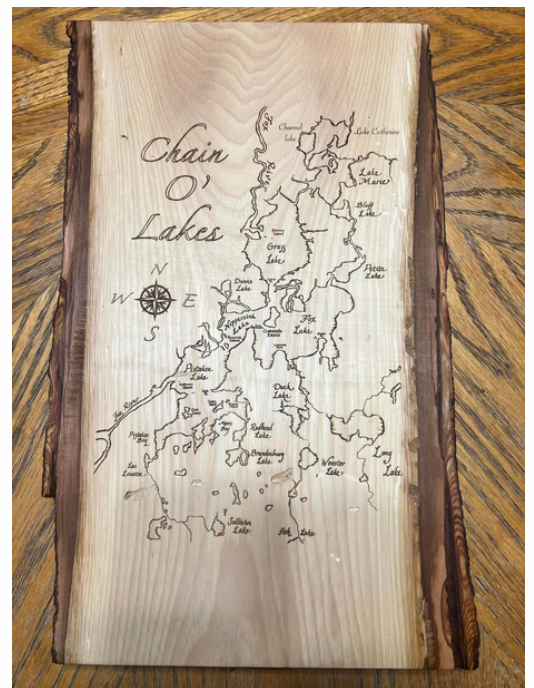 Chain
O'
Lakes
N
W E
S
Fox
River
Channel
lake
Lake Catherine
Lake
Marie
Bluff
Lake
Grass
Lake
Petite
Lake
Dunns
Lake
Nippersink
Lake
Fox
Lake
Pistakee
Lake
Duck
Lake
Fox River
Pistakee
Bay
Redhead
Lake
Brandenburg
Lake
Wooster
Lake
Long
Lake
Lac
Louette
Sullivan
Lake
Fish Lake